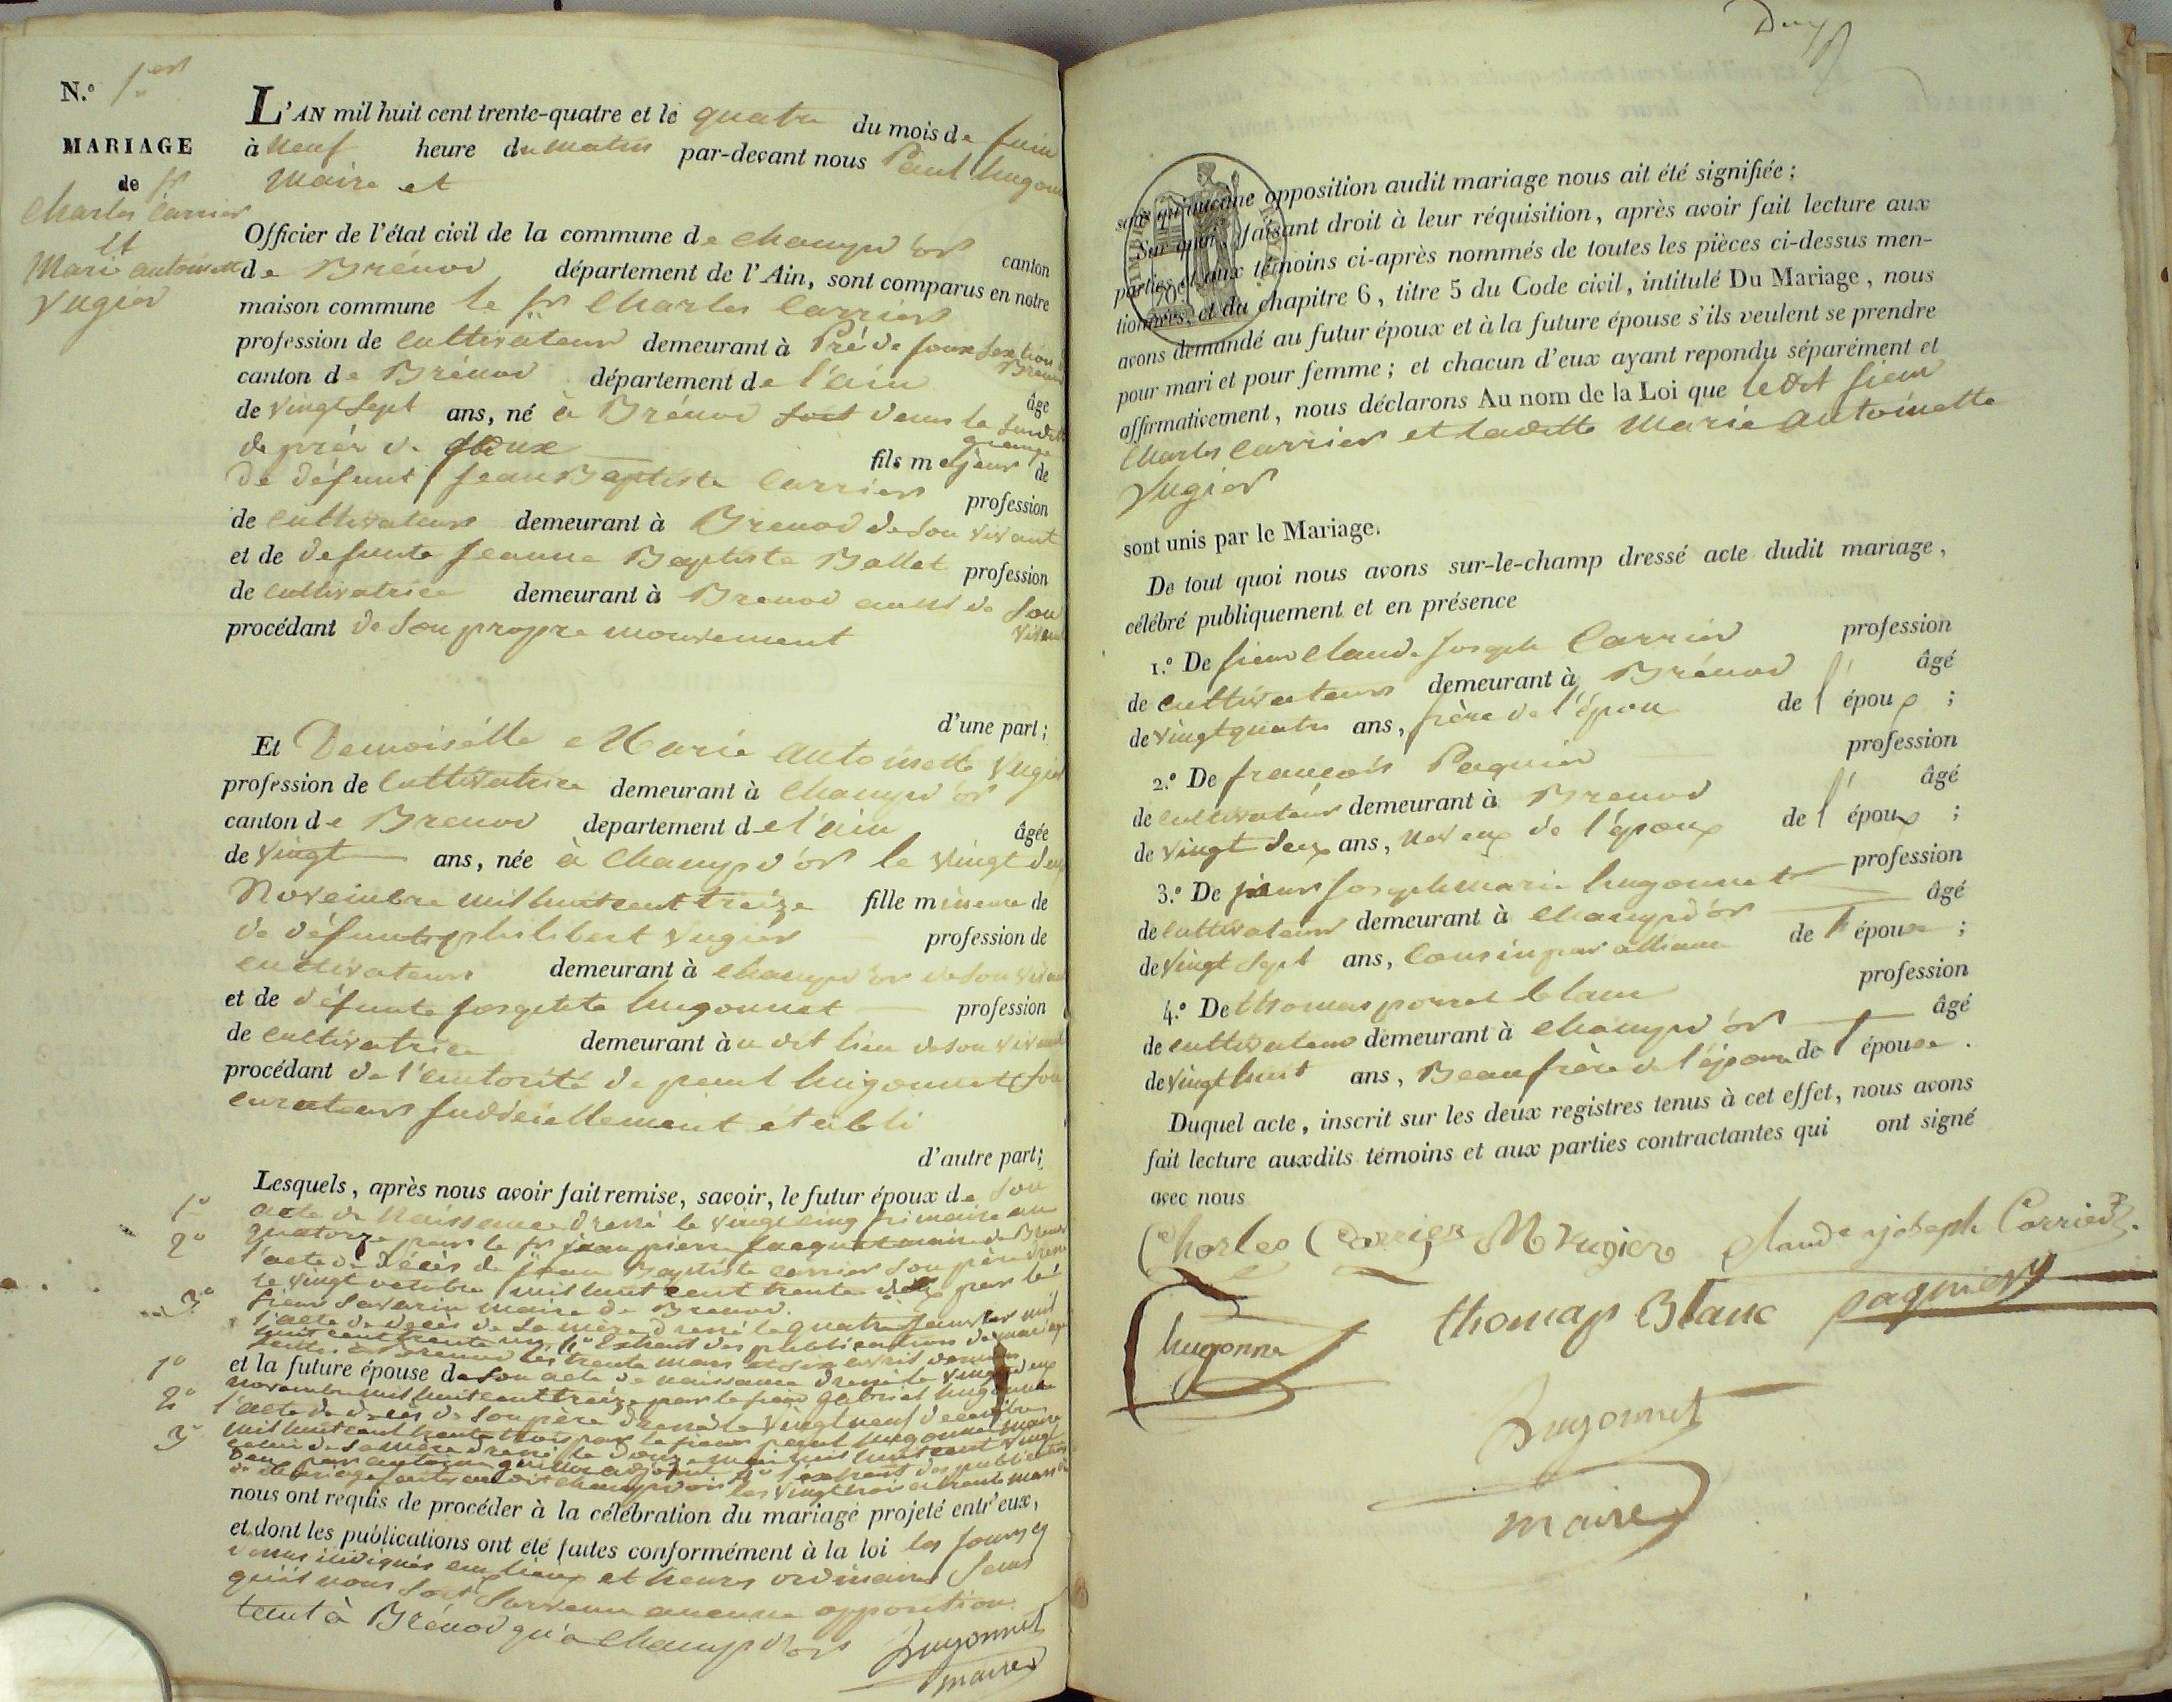 N.° 1er
MARIAGE
de Sr
Charles Carrier
et
Marie antoinette
Vugier
L'AN mil huit cent trente-quatre et le quatre du mois de Juin
à neuf heure du matin par-devant nous Paul hugonnet
Maire et
Officier de l'état civil de la commune de Champd'or canton
de Brénod département de l'Ain, sont comparus en notre
maison commune le Sr Charles Carrier
profession de Cultivateur demeurant à Pré de Joux Section Brénod
canton de Brénod département de l'ain âgé
de vingt Sept ans, né à Brénod soit dans la Susdite grange
de préz de joux fils majeur de
de défunt Jean Baptiste Carrier profession
de Cultivateur demeurant à Brenod de Son vivant
et de defunte Jeanne Baptiste Ballet profession
de Cultivatrice demeurant à Brenod aussi de Son vivant
procédant de Son propre mouvement
d'une part;
Et Demoiselle Marie Antoinette Vugier
profession de Cultivatrice demeurant à Champd'or
canton de Brenod departement de l'ain âgée
de vingt ans, née à Champd'or le vingt deux
Novembre mil huit cent treize fille mineure de
de défunt philibert Vugier profession de
cultivateur demeurant à Champd'or de Son vivant
et de défunte Josephte hugonnet profession
de Cultivatrice demeurant au dit lieu de Son vivant
procédant de l'autorité de paul hugonnet Son
curateur Judiciellement établi
d'autre part;
Lesquels, après nous avoir fait remise, savoir, le futur époux de Son
1° acte de Naissance dressé le vingt cinq frimaire an
quatorze par le Sr jean pierre Jacquet maire de Brenod
2° l'acte de décès de Jean Baptiste Carrier Son père dressé
le vingt octobre mil huit cent trente par le
Sieur Savarin maire de Brenod.
3° l'acte de décès de Sa mère dressé le quatre Janvier mil
huit cent trente un 4° Extrait des publications de mariage
faites à Brénod les trente mars et Six avril dernier
et la future épouse de Son acte de naissance dressé le vingt deux
1° novembre mil huit cent treize par le Sieur gabriel hugonnet
2° l'acte de décès de Son père dressé le vingt neuf décembre
mil huit cent trente trois par le Sieur paul hugonnet maire
3° celui de Sa mère dressé le douze mai mil huit cent vingt
deux par adjoint 4° l'extrait des publications
de mariage faites au dit Champd'or les vingt trois et trente mars
nous ont requis de procéder à la célébration du mariage projeté entr'eux,
et dont les publications ont été faites conformément à la loi les Jours cy
dessus indiqués aux lieux et heures ordinaires Sans
qu'il nous Soit Survenu aucune opposition
tant à Brénod qu'à Champd'or
hugonnet
maire
Deux
sans qu'aucune opposition audit mariage nous ait été signifiée;
Sur quoi, faisant droit à leur réquisition, après avoir fait lecture aux
parties et aux témoins ci-après nommés de toutes les pièces ci-dessus men-
tionnées, et du chapitre 6, titre 5 du Code civil, intitulé Du Mariage, nous
avons demandé au futur époux et à la future épouse s'ils veulent se prendre
pour mari et pour femme; et chacun d'eux ayant repondu séparément et
affirmativement, nous déclarons Au nom de la Loi que le dit Sieur
Charles Carrier et ladite Marie Antoinette
Vugier
sont unis par le Mariage.
De tout quoi nous avons sur-le-champ dressé acte dudit mariage,
célébré publiquement et en présence
1.° De Sieur Claude Joseph Carrier profession
de cultivateur demeurant à Brénod âgé
de vingt quatre ans, frère de l'époux de l'époux;
2.° De françois Paquier profession
de cultivateur demeurant à Brenod âgé
de vingt deux ans, neveux de l'époux de l'époux;
3.° De Sieur Joseph marie hugonnet profession
de cultivateur demeurant à Champd'or âgé
de vingt Sept ans, Cousin par alliance de l'épouse;
4.° De thomas poncet blanc profession
de cultivateur demeurant à Champd'or âgé
de vingt huit ans, Beaufrère de l'épouse de l'épouse.
Duquel acte, inscrit sur les deux registres tenus à cet effet, nous avons
fait lecture auxdits témoins et aux parties contractantes qui ont signé
avec nous
Charles Carrier M Vugier Claude joseph Carrier
hugonne thomas Blanc paquiery
hugonnet
maire